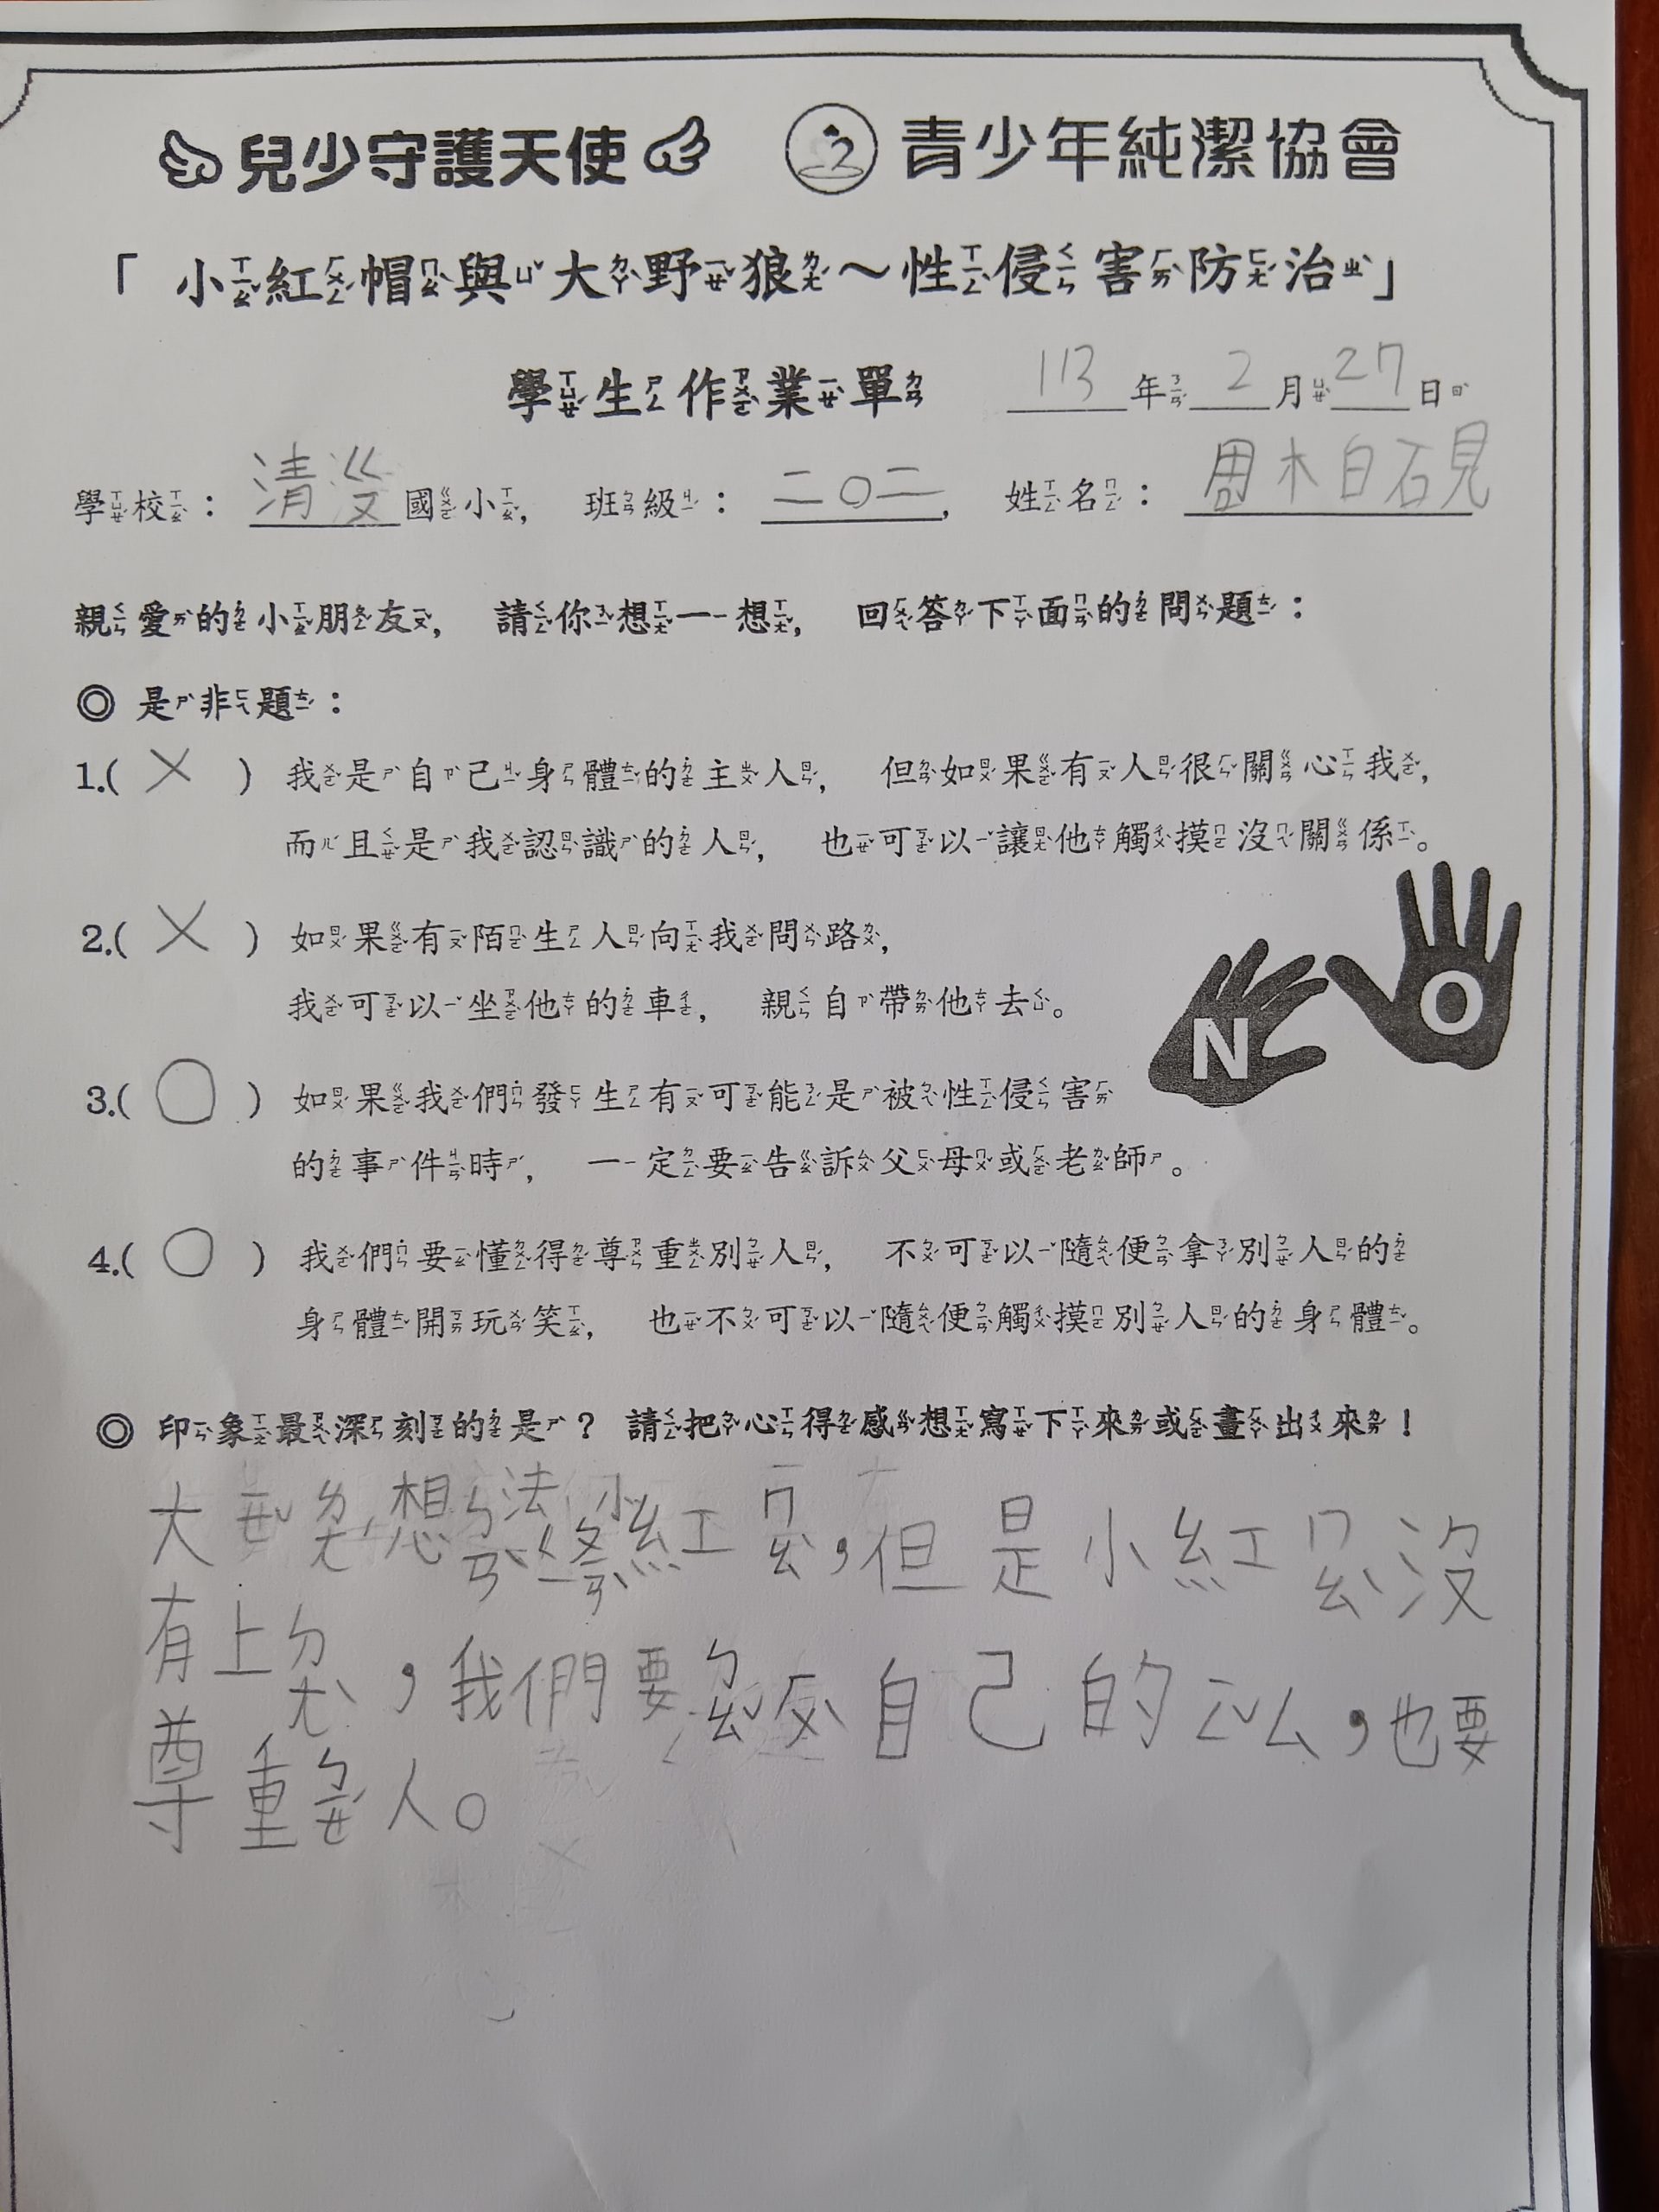 兒少守護天使 青少年純潔協會
「小紅帽與大野狼～性侵害防治」
學生作業單 113年2月27日
學校：清溪國小， 班級：二〇二， 姓名：周柏硯
親愛的小朋友， 請你想一想， 回答下面的問題：
◎ 是非題：
1.( ╳ ) 我是自己身體的主人， 但如果有人很關心我，
而且是我認識的人， 也可以讓他觸摸沒關係。
2.( ╳ ) 如果有陌生人向我問路，
我可以坐他的車， 親自帶他去。
NO
3.( ○ ) 如果我們發生有可能是被性侵害
的事件時， 一定要告訴父母或老師。
4.( ○ ) 我們要懂得尊重別人， 不可以隨便拿別人的
身體開玩笑， 也不可以隨便觸摸別人的身體。
◎ 印象最深刻的是？請把心得感想寫下來或畫出來！
大ㄧㄝˇㄌㄤˊ想法小紅ㄇㄠˋ，但是小紅ㄇㄠˋ沒
有上ㄉㄤˋ，我們要ㄅㄠˇㄏㄨˋ自己的ㄕㄣㄊㄧˇ，也要
尊重ㄅㄧㄝˊ人。